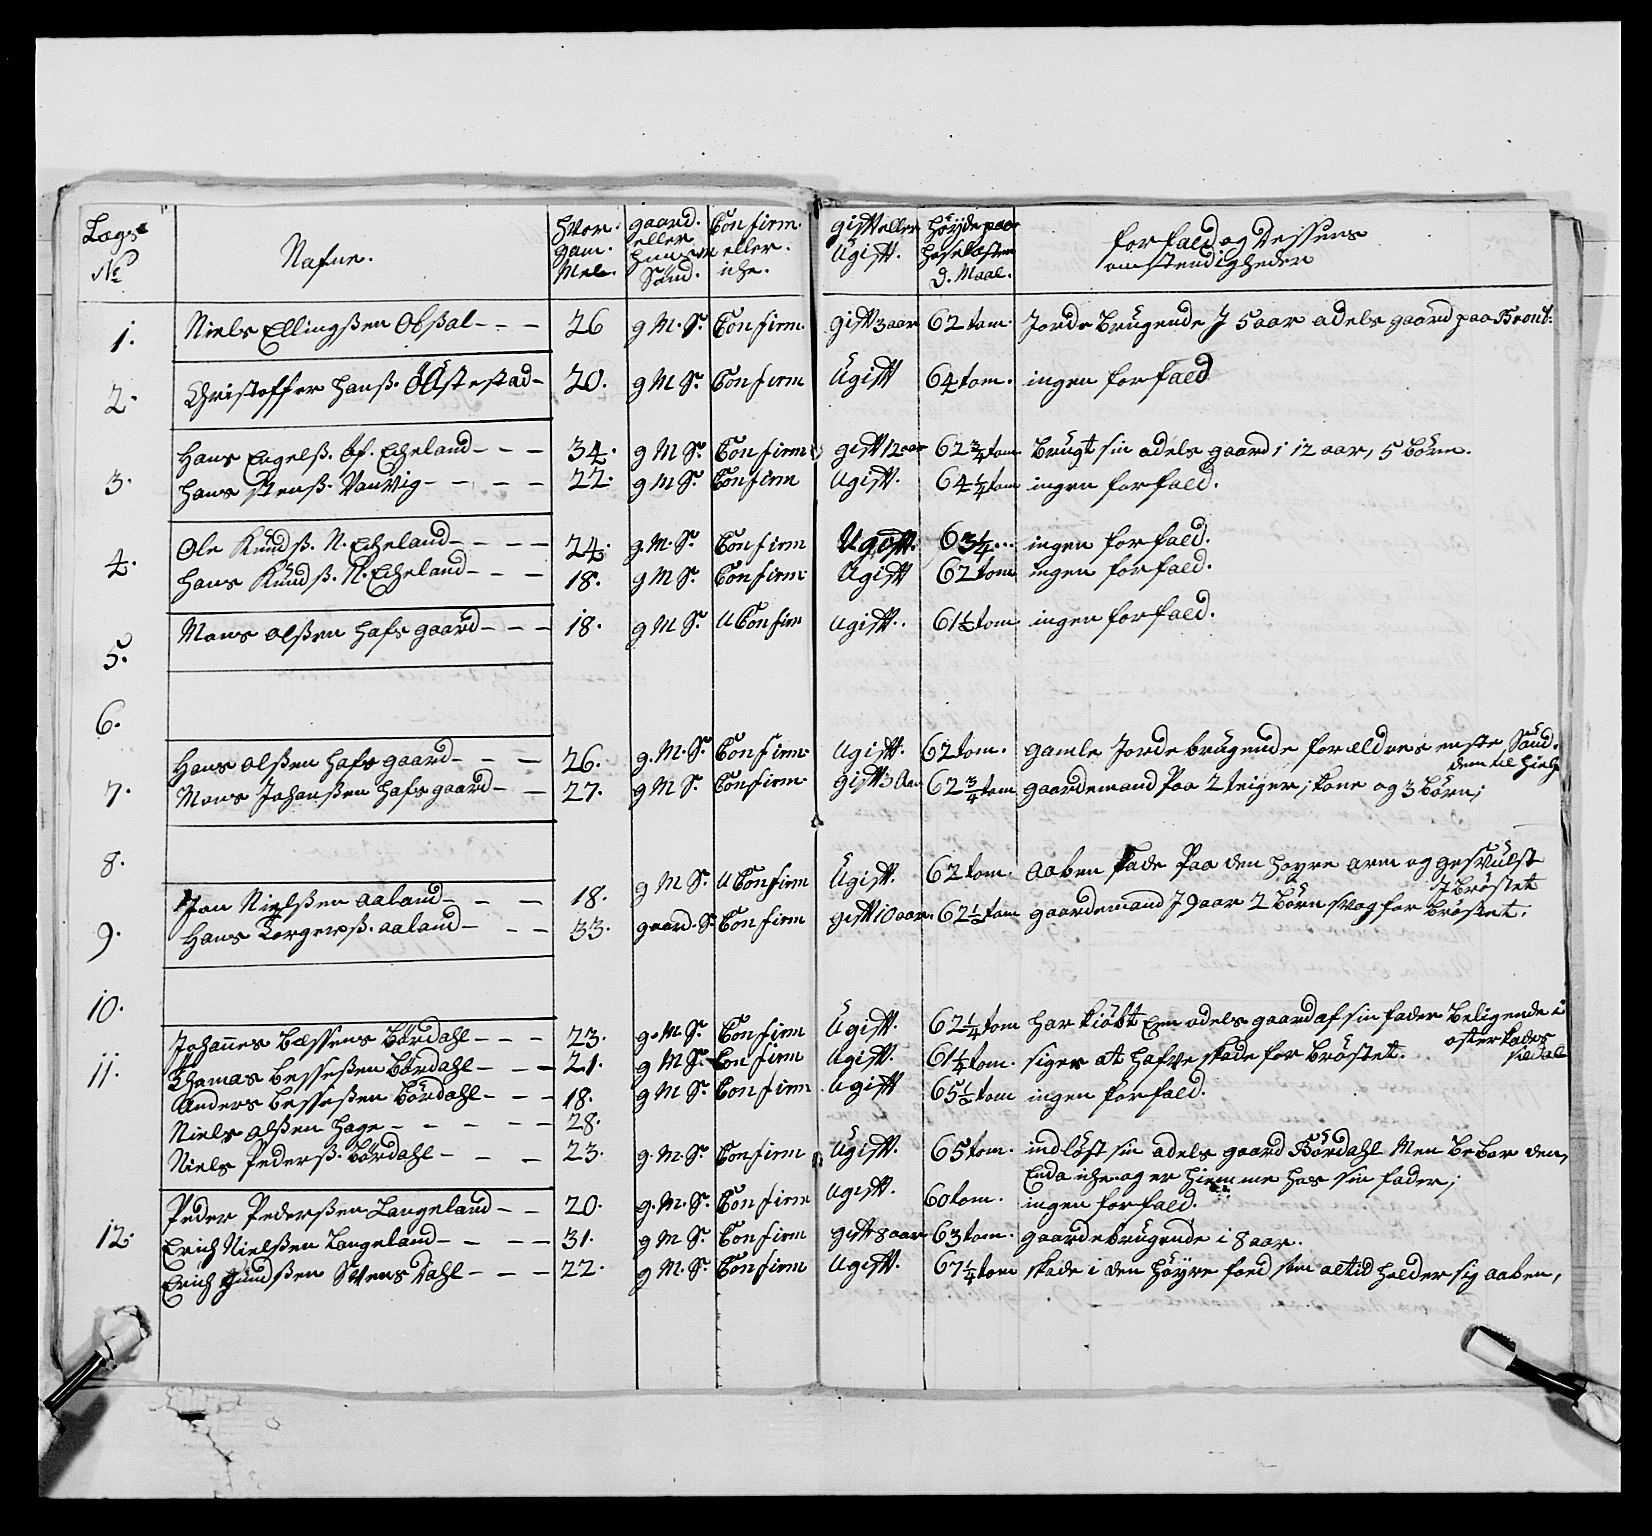 Lægs No | Nafne. | Hvor gam- mel. | gaard. eller huusm Sönd. | Confirm. eller iche. | gift eller Ugift. | Höyde paa hosesaaker d. Maal. | forfald og dessens omstendigheder
1. | Niels Ellingßen Obßal - - - | 26 | g M. S. | Confirm. | gift 3 aar | 62 tom. | Jorde brügende J 5 aar odels gaard paa
2. | Christoffer Hanß. - | 20. | g M S. | Confirm | Ugift | 64 tom. | ingen forfald
3. | Hans Engelß. Øf. Echeland - - - | 34. | g M S. | Confirm | gift 12 aar | 62 3/4 tom | brügt sin odels gaard i 12 aar, 5 börn.
Hans Stenß. Vanvig - - - - | 22. | g M S. | Confirm | Ugift. | 64 1/4 tom | ingen forfald.
4. | Ole Knudß. N. Echeland - - - - | 24. | g. M. S. | Confirm | Ugift. | 63 1/4 ... | ingen forfald.
Hans Knudß. N. Echeland - - - | 18. | g M S. | Confirm | Ugift | 62 tom | ingen forfald.
5. | Mons olßen Hafsgaard - - - | 18. | g M S. | U Confirm | Ugift. | 61 1/2 tom | ingen forfald.
6.
7. | Hans olßen Hafsgaard - - - | 26. | g. M. S. | Confirm. | Ugift. | 62 tom. | gamle Jordebrügende forældres eneste Sönd.
dem til hielp
Mons Johanßen Hafsgaard - - | 27. | g M S. | Confirm. | gift 3 Aar | 62 3/4 tom | gaardemand paa 2 teiger, kone og 3 börn;
8.
9. | Jon Nielßen Aaland - - - | 18. | g M S. | U Confirm | Ugift. | 62 tom. | Aaben skade paa den høyre arm og gesvülst
i bröstet
Hans Torgerß. Aaland - - - | 33. | gaard. S. | Confirm | gift 10 aar. | 62 1/2 tom | gaardemand J 9 aar 2 börn svag for bröstet.
10.
11. | Johannes Bessens Bördahl - - - | 23. | g. M. S. | Confirm | Ugift. | 62 1/4 tom | har kiöbt Een odels gaard af sin fader beligende i
Thomas Besseßen Bördahl - - - | 21. | g M S. | Confirm | Ugift. | 61 1/4 tom. | siger at hafve skade for bröstet.
Anders Besseßen Bördahl - - - | 18. | g M S. | Confirm | Ugift | 65 1/2 tom | ingen forfald.
Niels olßen Hage - - - - - | 28.
Niels Pederß. Bördahl - - - | 23. | g. M. S. | Confirm | Ugift. | 65 tom. | indlöst sin odels gaard Bördahl Men bebor den,
Enda iche og er hiemme hos sin fader;
12. | Peder Pederßen Langeland - - | 20. | g. M. S. | Confirm | Ugift. | 60 tom. | ingen forfald.
Erich Nielßen Langeland - - - - | 31. | g M S. | Confirm | gift 8 aar | 63 tom. | gaardebrügende i 8 aar.
Erich Svens Dahl - - - | 22. | g M. S. | Confirm | Ugift. | 67 1/4 tom | skade i den höyre foed som altid holder sig aaben,